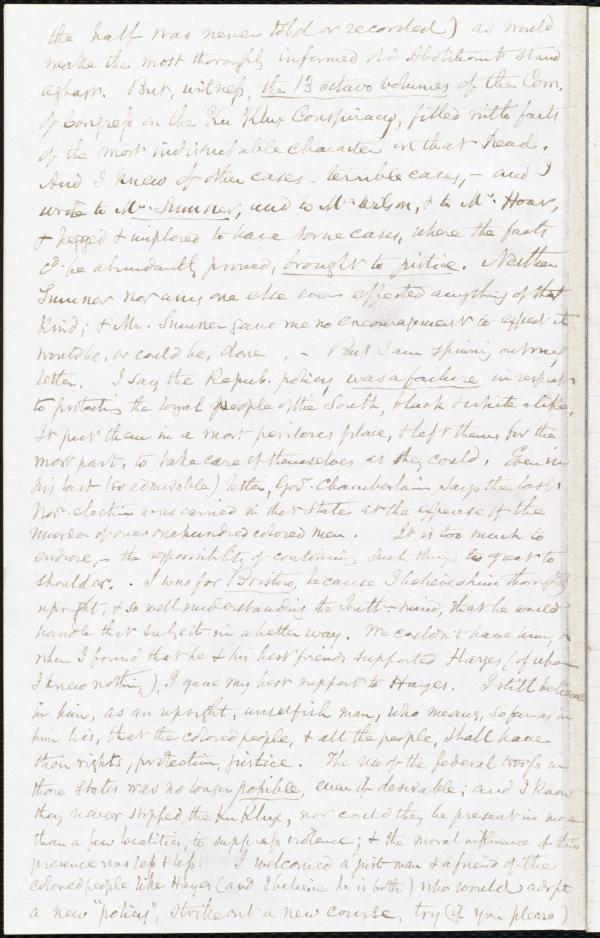 the half was never told or recorded) as would
make the most thoroughly informed old Abolitionist stand
aghast. But, witness, the 13 octavo volumes of the Com.
of Congress on the Ku Klux Conspiracy, filled with facts
of the most indisputable character on that head.
And I knew of other cases - terrible cases, - and I
wrote to Mr. Sumner, and to Mr. Wilson, & to Mr. Hoar,
& begged & implored to have some cases, where the facts
cd. be abundantly proved, brought to justice. Neither
Sumner nor any one else ever effected anything of that
kind; & Mr. Sumner gave me no encouragement to expect it
would be, or could be, done. - But I am spinning out my
letter. I say the Repub. policy was a failure in respect
to protecting the loyal people of the South, black & white alike,
It put them in a most perilous place, & left them, for the
most part, to take care of themselves as they could. Even in
his last (so admirable) letter, Gov. Chamberlain says the last
Nov. election was carried in that State at the expense of the
murder of over one hundred colored men. It is too much to
endure, - the responsibility of continuing such things too great to
shoulder. . I was for Bristow, because I believe him thoroughly
upright, & so well understanding the South-mind, that he would
handle that subject in a better way. We couldn't have him, &
when I found that he & his best friends supported Hayes (of whom
I knew nothing), I gave my best support to Hayes. I still believe
in him, as an upright, unselfish man, who means, so far as in
him lies, that the colored people, & all the people, shall have
their rights, protection, justice. The use of the federal troops in
those States was no longer possible, even if desirable; and I know
they never stopped the Ku Klux, nor could they be present in more
than a few localities, to suppress violence; & the moral influence of their
presence was less & less. I welcomed a just man & a friend of the
colored people like Hayes (and I believe he is both) who would adopt
a new "policy", strike out a new course, try (if you please)